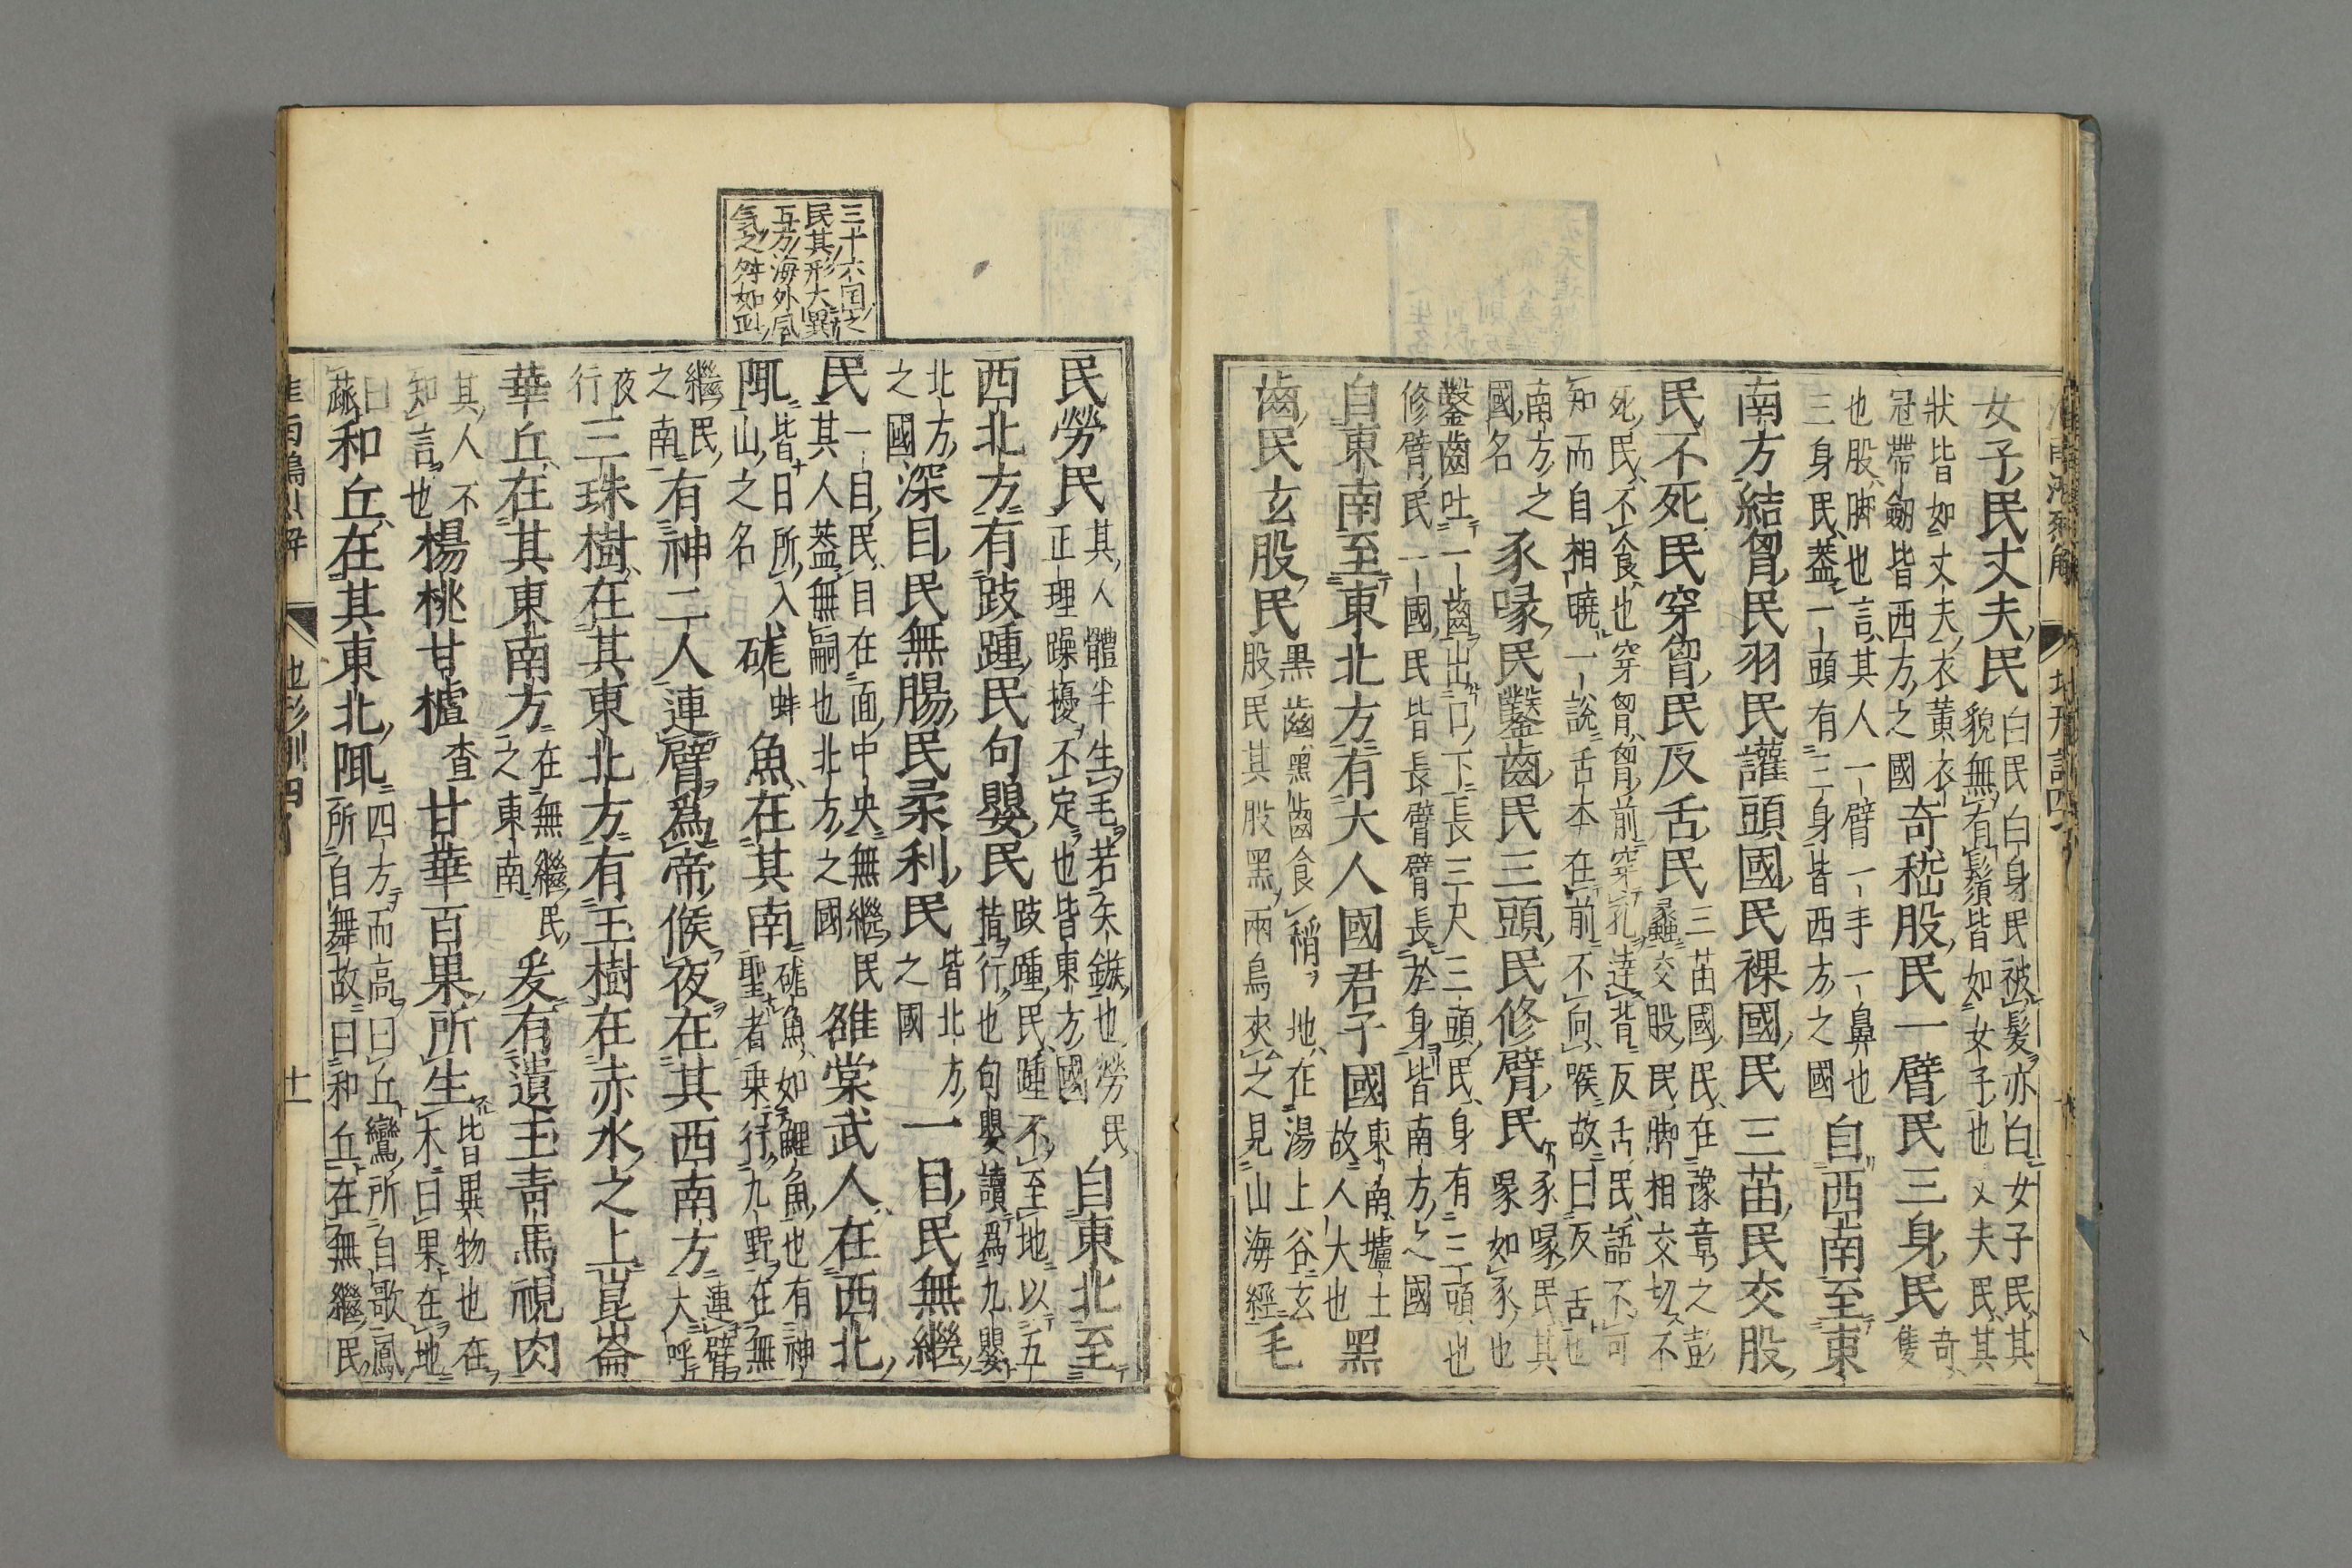 女子民丈夫民白民白身民被髮亦白女子民其貌無有鬚皆如女子也丈夫民其
狀皆如丈夫衣黃衣冠帶劒皆西方之國奇股民一臂民三身民奇隻
也股脚也言其人一臂一手一鼻也三身民葢一頭有三身皆西方之國自西南至東
南方結胷民羽民讙頭國民裸國民三苗民交股
民不死民穿胷民反舌民三苗國民在豫章之彭蠡交股民脚相交切不
死民不食也穿胷胷前穿孔達背反舌民語不可知而自相曉一說舌本在前不向喉故曰反舌也
南方之國名豕喙民鑿齒民三頭民修臂民豕喙民其喙如豕也
鑿齒吐一齒出口下長三尺三頭民身有三頭也修臂民一國民皆長臂臂長於身皆南方之國
自東南至東北方有大人國君子國東南墟土故人大也黑
齒民玄股民黑齒黑齒食稻地在湯上谷玄股民其股黑兩鳥夾之見山海經毛
三十六国之
民其形大異
五方海外風
氣之殊如此
民勞民其人體半生毛若矢鏃也勞民正理躁擾不定也皆東方國自東北至
西北方有跂踵民句嬰民跂踵民踵不至地以五指行也句嬰讀爲九嬰
北方之國深目民無腸民柔利民皆北方之國一目民無繼
民一目民目在面中央無繼民其人葢無嗣也北方之國雒棠武人在西北
陬皆日所入山之名硥蚌魚在其南硥魚如鯉魚也有神聖者乘行九野在無
繼民之南有神二人連臂爲帝候夜在其西南方連臂大呼
夜行三珠樹在其東北方有玉樹在赤水之上崑崙
華丘在其東南方在無繼民之東南爰有遺玉青馬視肉
其人不知言也楊桃甘樝查甘華百果所生皆異物也在木曰果在地
曰蓏和丘在其東北陬四方而高曰丘鸞所自歌鳳所自舞故曰和丘在無繼民